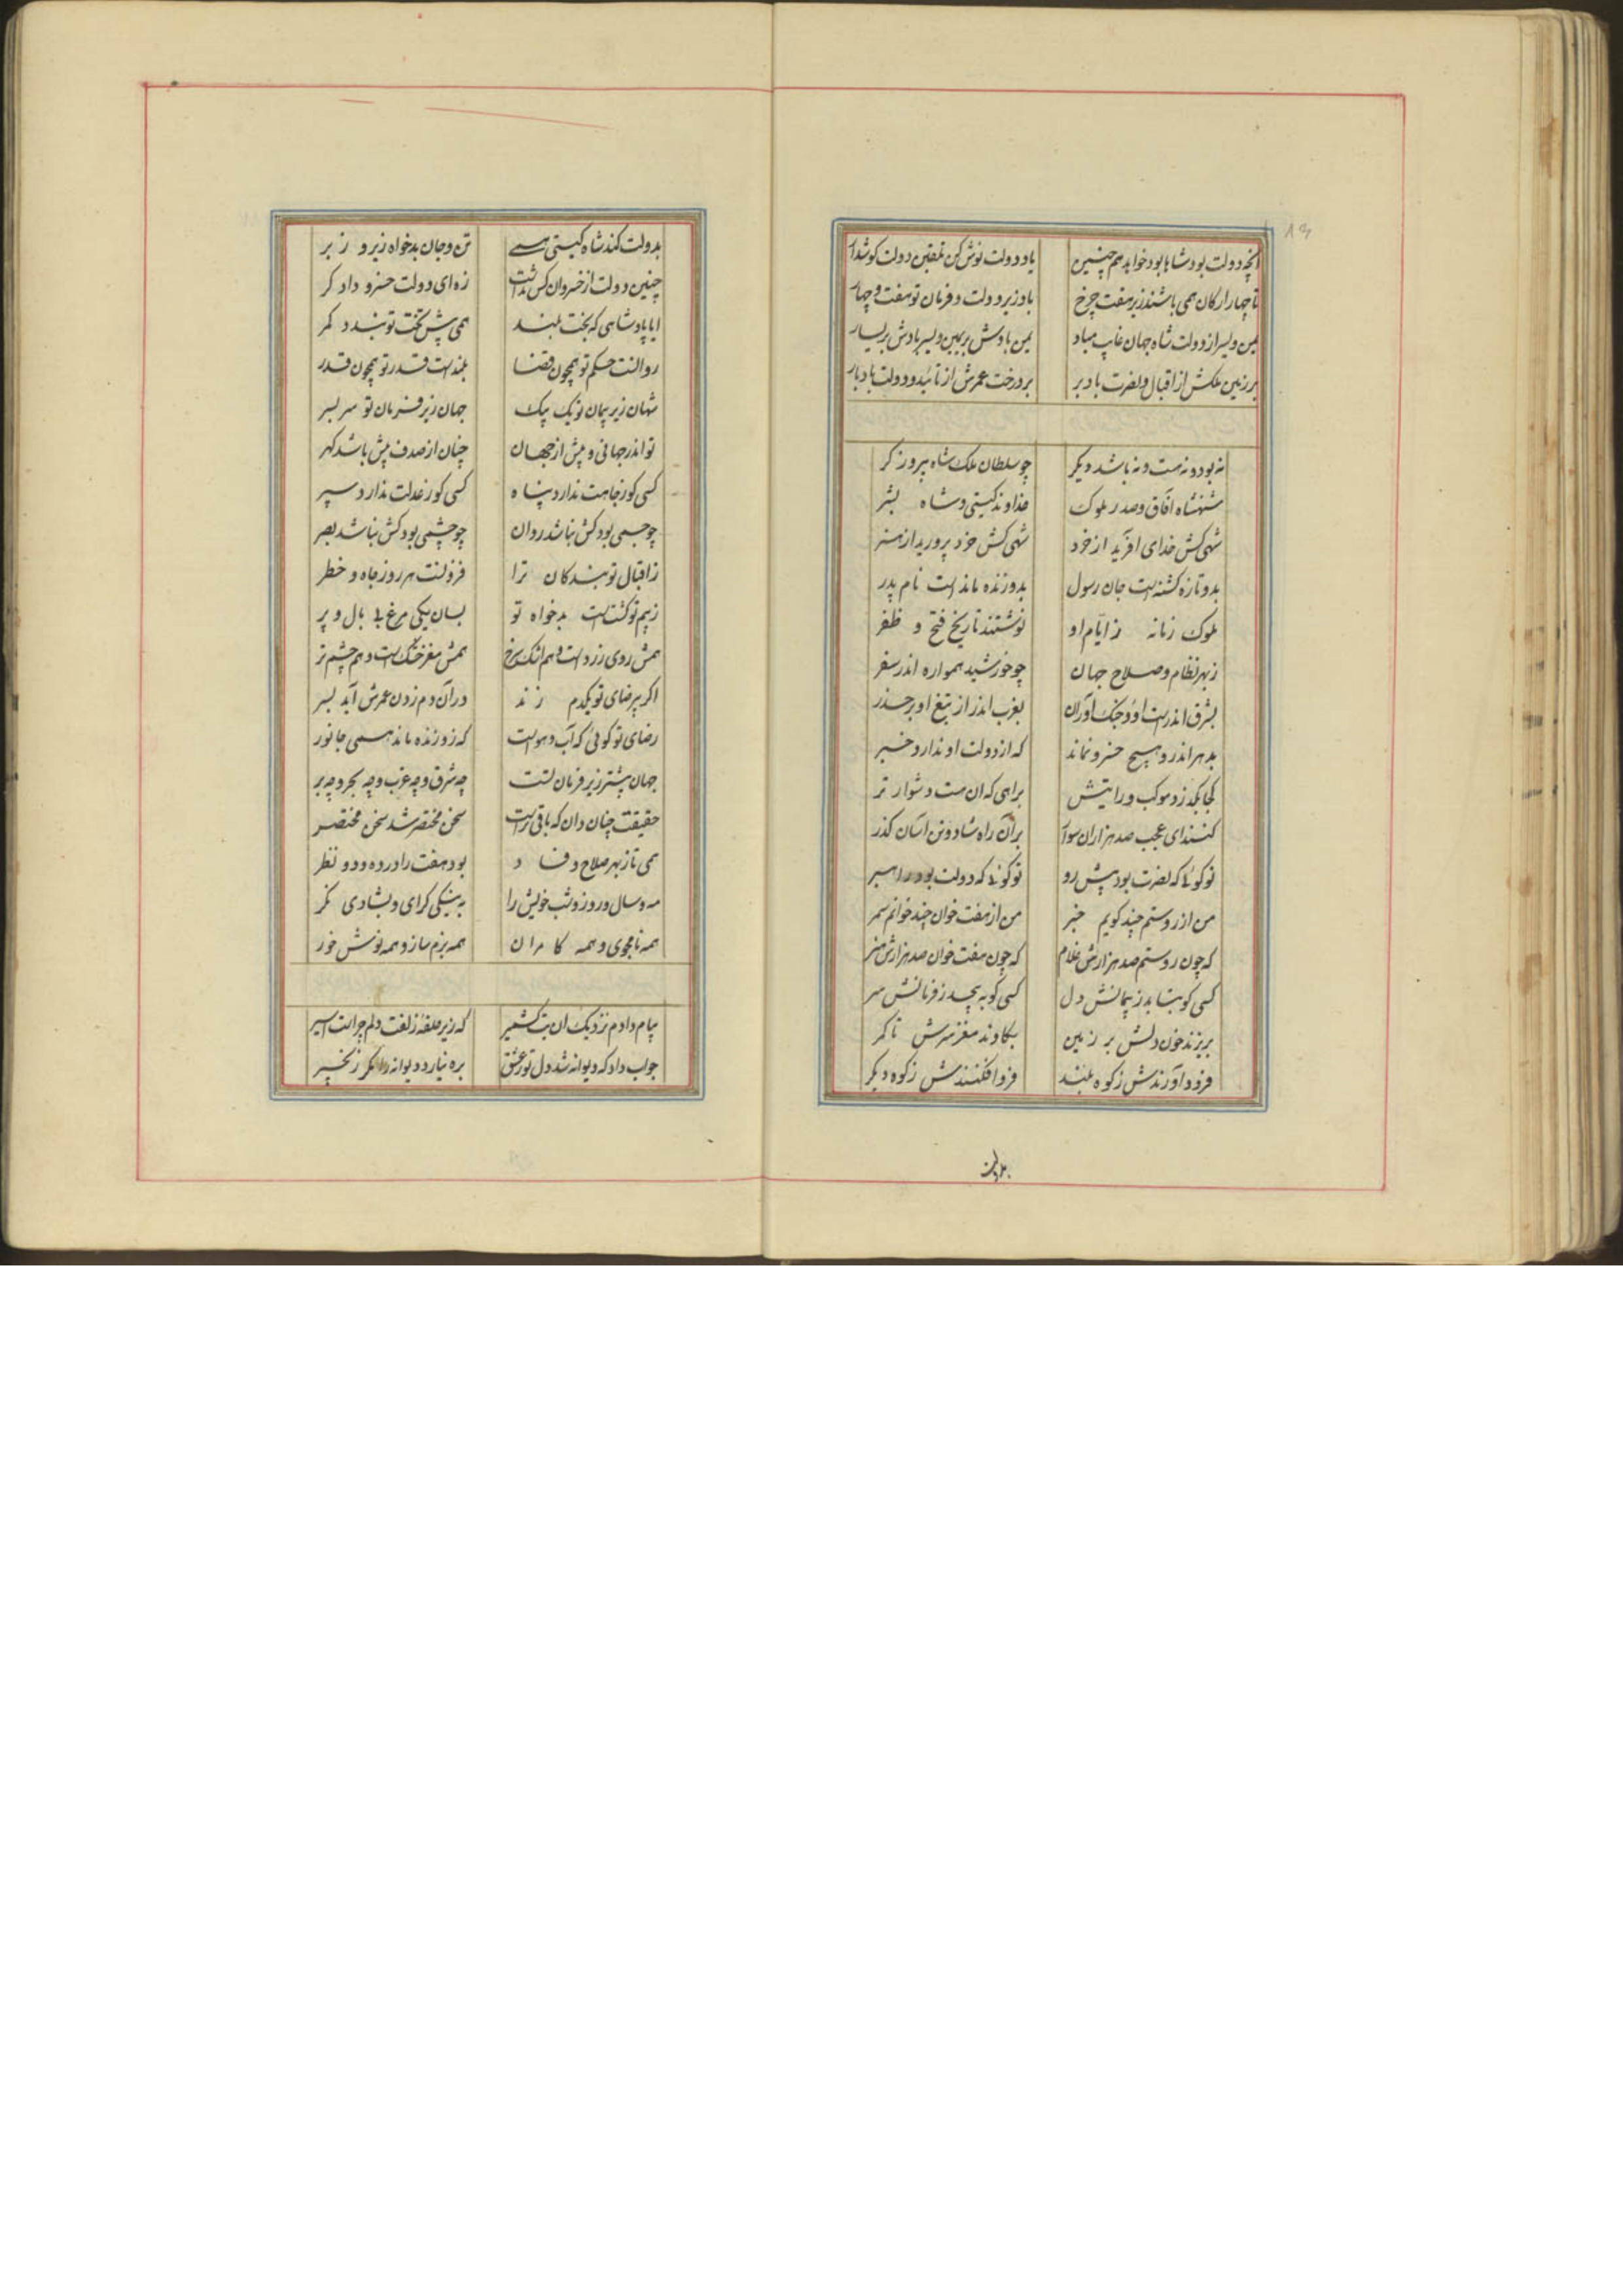 آنچه دولت بود شاها بود خواهد هم چنین یاد دولت نوش کن تلقین دولت گوشدار
تا چهار ارکان همی باشند زیر هفت چرخ باد زیر دولت و فرمان تو هفت و چهار
یمن و یسر از دولت شاه جهان غایب مباد یمن بادش بر یمین و یسر بادش بر یسار
بر زمین ملکش از اقبال و نصرت باد بر بر درخت عمرش از تائید و دولت باد بار
نه بود و نه هست و نه باشد دیگر چو سلطان ملک شاه پیروزگر
شهنشاه آفاق و صدر ملوک خداوند گیتی و شاه بشر
شهی کش خدای آفرید از خرد شهی کش خرد پرورید از هنر
بدو تازه گشته است جان رسول بدو زنده مانده است نام پدر
ملوک زمانه ز ایام او نوشتند تاریخ فتح و ظفر
ز بهر نظام و صلاح جهان چو خورشید همواره اندر سفر
بشرق اندرست او و جنگ آوران بغرب اندر از تیغ او بر حذر
بدهر اندرو هیچ خسرو نماند که از دولت او ندارد خبر
کجا بگذرد موکب و رایتش براهی که آن هست دشوارتر
کنند ای عجب صد هزاران سوار بر آن راه شاد و تن آسان گذر
تو گوئی که نصرت بود پیش رو تو گوئی که دولت بود راهبر
من از روستم چند گویم خبر من از هفت خوان چند خوانم سمر
که چون روستم صد هزارش غلام که چون هفت خوان صد هزارش هنر
کسی کو بتابد ز پیمانش دل کسی کو بپیچد ز فرمانش سر
بریزند خون دلش بر زمین بکاوند مغز سرش تا کمر
فرود آورندش ز کوه بلند فرو افکنندش ز کوه دیگر
بدولت
بدولت کند شاه گیتی همی تن و جان بدخواه زیر و زبر
چنین دولت از خسروان کس نداشت زه ای دولت خسرو دادگر
ایا پادشاهی که بخت بلند همی پیش تخت تو بندد کمر
روانست حکم تو همچون قضا بلندست قدر تو همچون قدر
شهان زیر پیمان تو یک بیک جهان زیر فرمان تو سر بسر
تو اندر جهانی و پیش از جهان چنان از صدف پیش باشد گهر
کسی کو ز جاهت ندارد پناه کسی کو ز عدلت ندارد سپر
چو جسمی بود کش نباشد روان چو چشمی بود کش نباشد بصر
ز اقبال تو بندگان ترا فزونست هر روز جاه و خطر
ز بیم تو گشتست بدخواه تو بسان یکی مرغ بی بال و پر
همش روی زردست و هم اشک سرخ همش مغز خشکست و هم چشم تر
اگر بی رضای تو یکدم زند در آن دم زدن عمرش آید بسر
رضای تو گوئی که آب و هواست که زو زنده ماند همی جانور
جهان بیشتر زیر فرمان تست چه شرق و چه غرب و چه بحر و چه بر
حقیقت چنان دان که باقی تراست سخن مختصر شد سخن مختصر
همی تا ز بهر صلاح و فساد بود هفت را در ده و دو نظر
مه و سال و روز و شب خویش را به نیکی گرای و بشادی نگر
همه نام جوی و همه کام ران همه بزم ساز و همه نوش خور
پیام دادم نزدیک آن بت کشمیر که زیر حلقه زلفت دلم چراست اسیر
جواب داد که دیوانه شد دل تو ز عشق بره نیارد دیوانه را مگر زنجیر